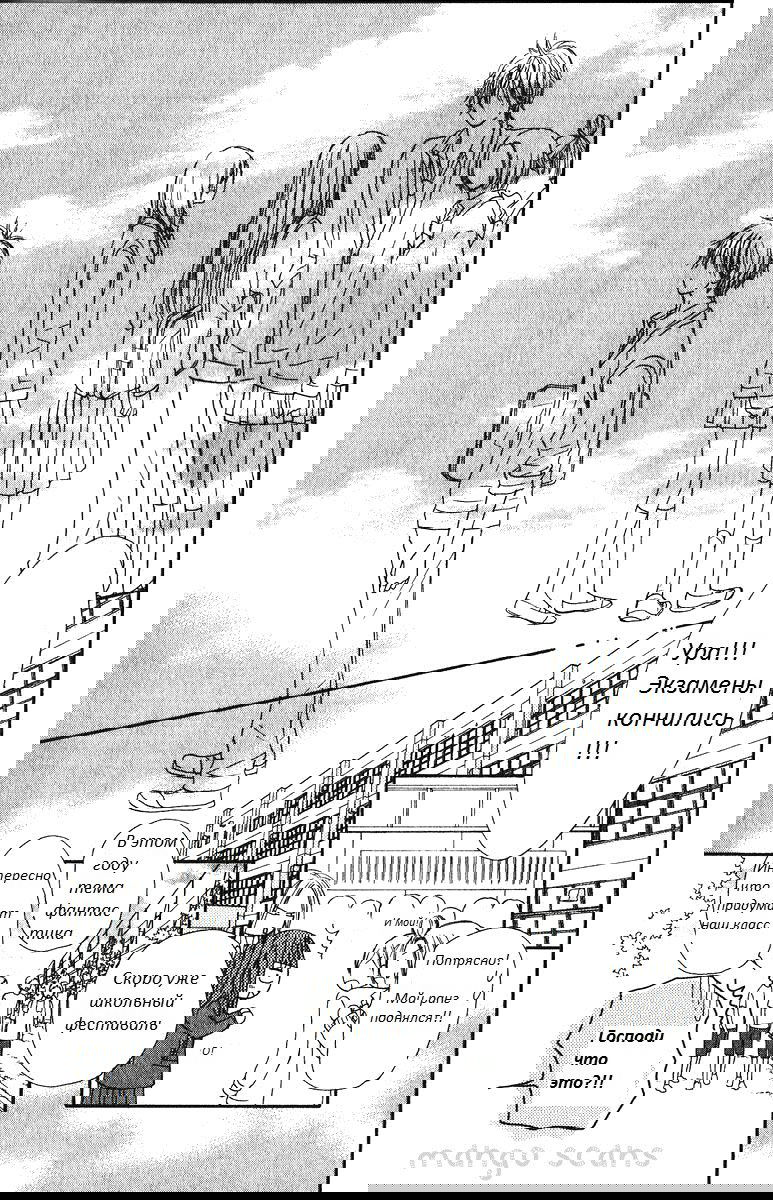 Ура!!!
Экзамены
кончились
!!!
В этом
году
тема
фантас
тика
Скоро уже
школьный
фестиваль
И мой
Потрясно!
Мой ранг
поднялся!!
что
наш класс
Господи
что
это?!!
mango scans